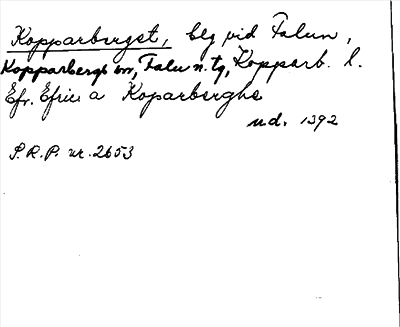 Kopparberget, blg vid Falun,
Kopparbergs sn, Falu n. tg, Kopparb. l.
Efr. Efrie a Koparberghe
u.d. 1392
S.R.P. nr. 2653